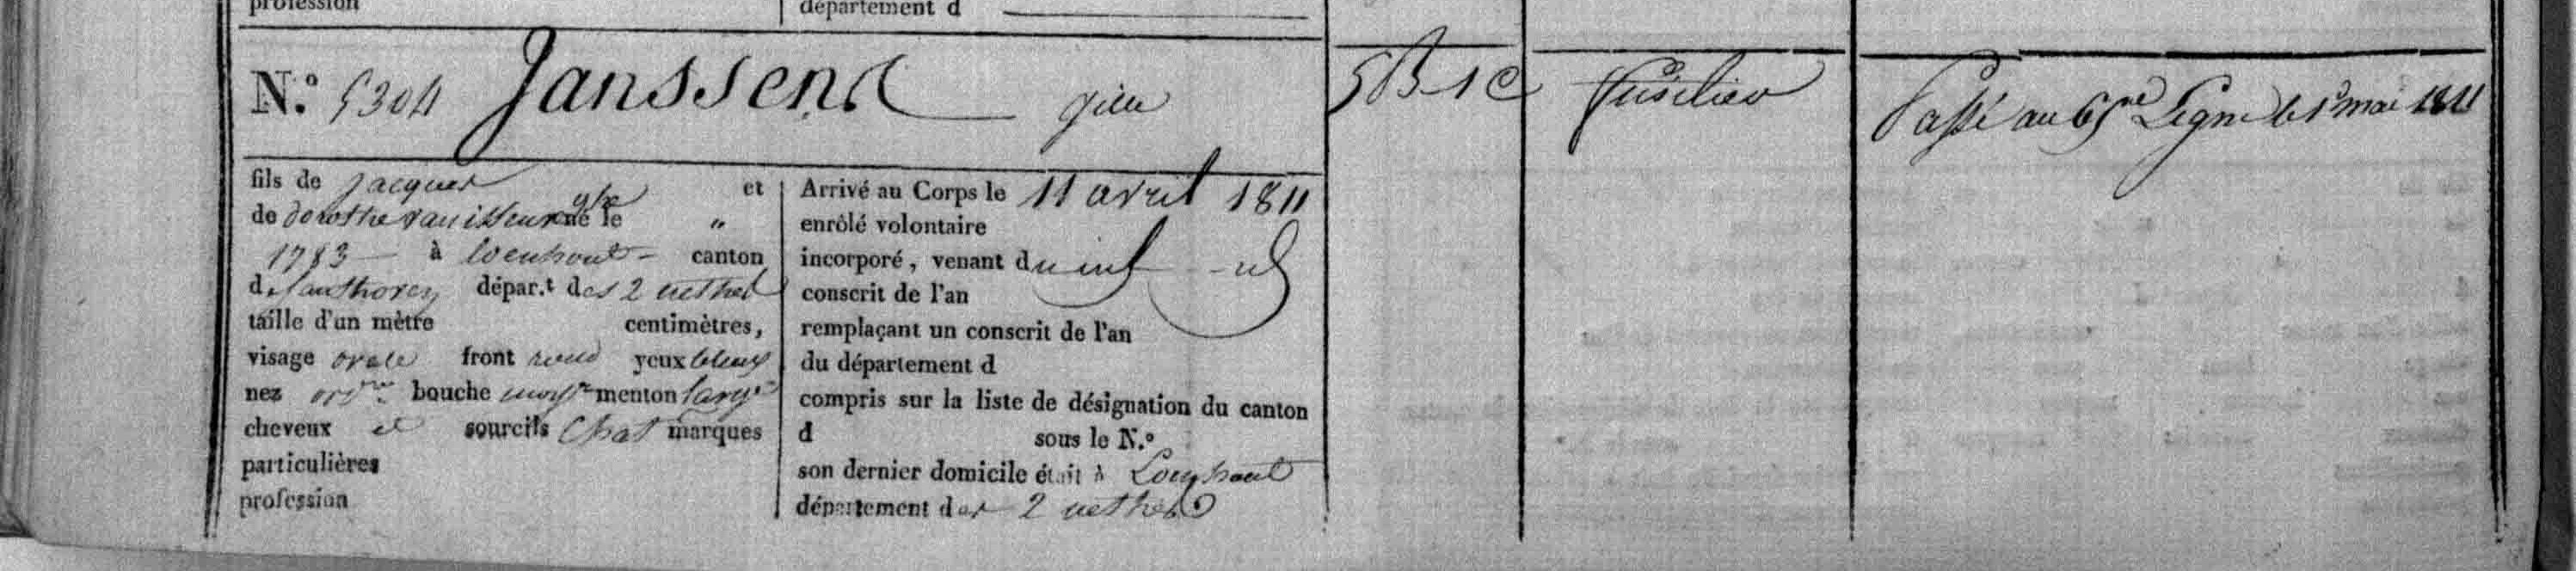 profession
département d
N.° 5304 Janssens gille
5B 1C
Fusilier
Passé au 65me Ligne le 1er mai 1811
fils de jacques et
de dorothe vanisseur né le 9bre "
1783 à loenhout canton
d départ. des 2 nethes
taille d'un mètre centimètres,
visage ovale front rond yeux bleus
nez ordre bouche moyne menton large
cheveux et sourcils Chat marques
particulières
profession
Arrivé au Corps le 11 avril 1811
enrôlé volontaire
incorporé, venant du
conscrit de l'an
remplaçant un conscrit de l'an
du département d
compris sur la liste de désignation du canton
d sous le N.°
son dernier domicile était à Loenhout
département des 2 nethes